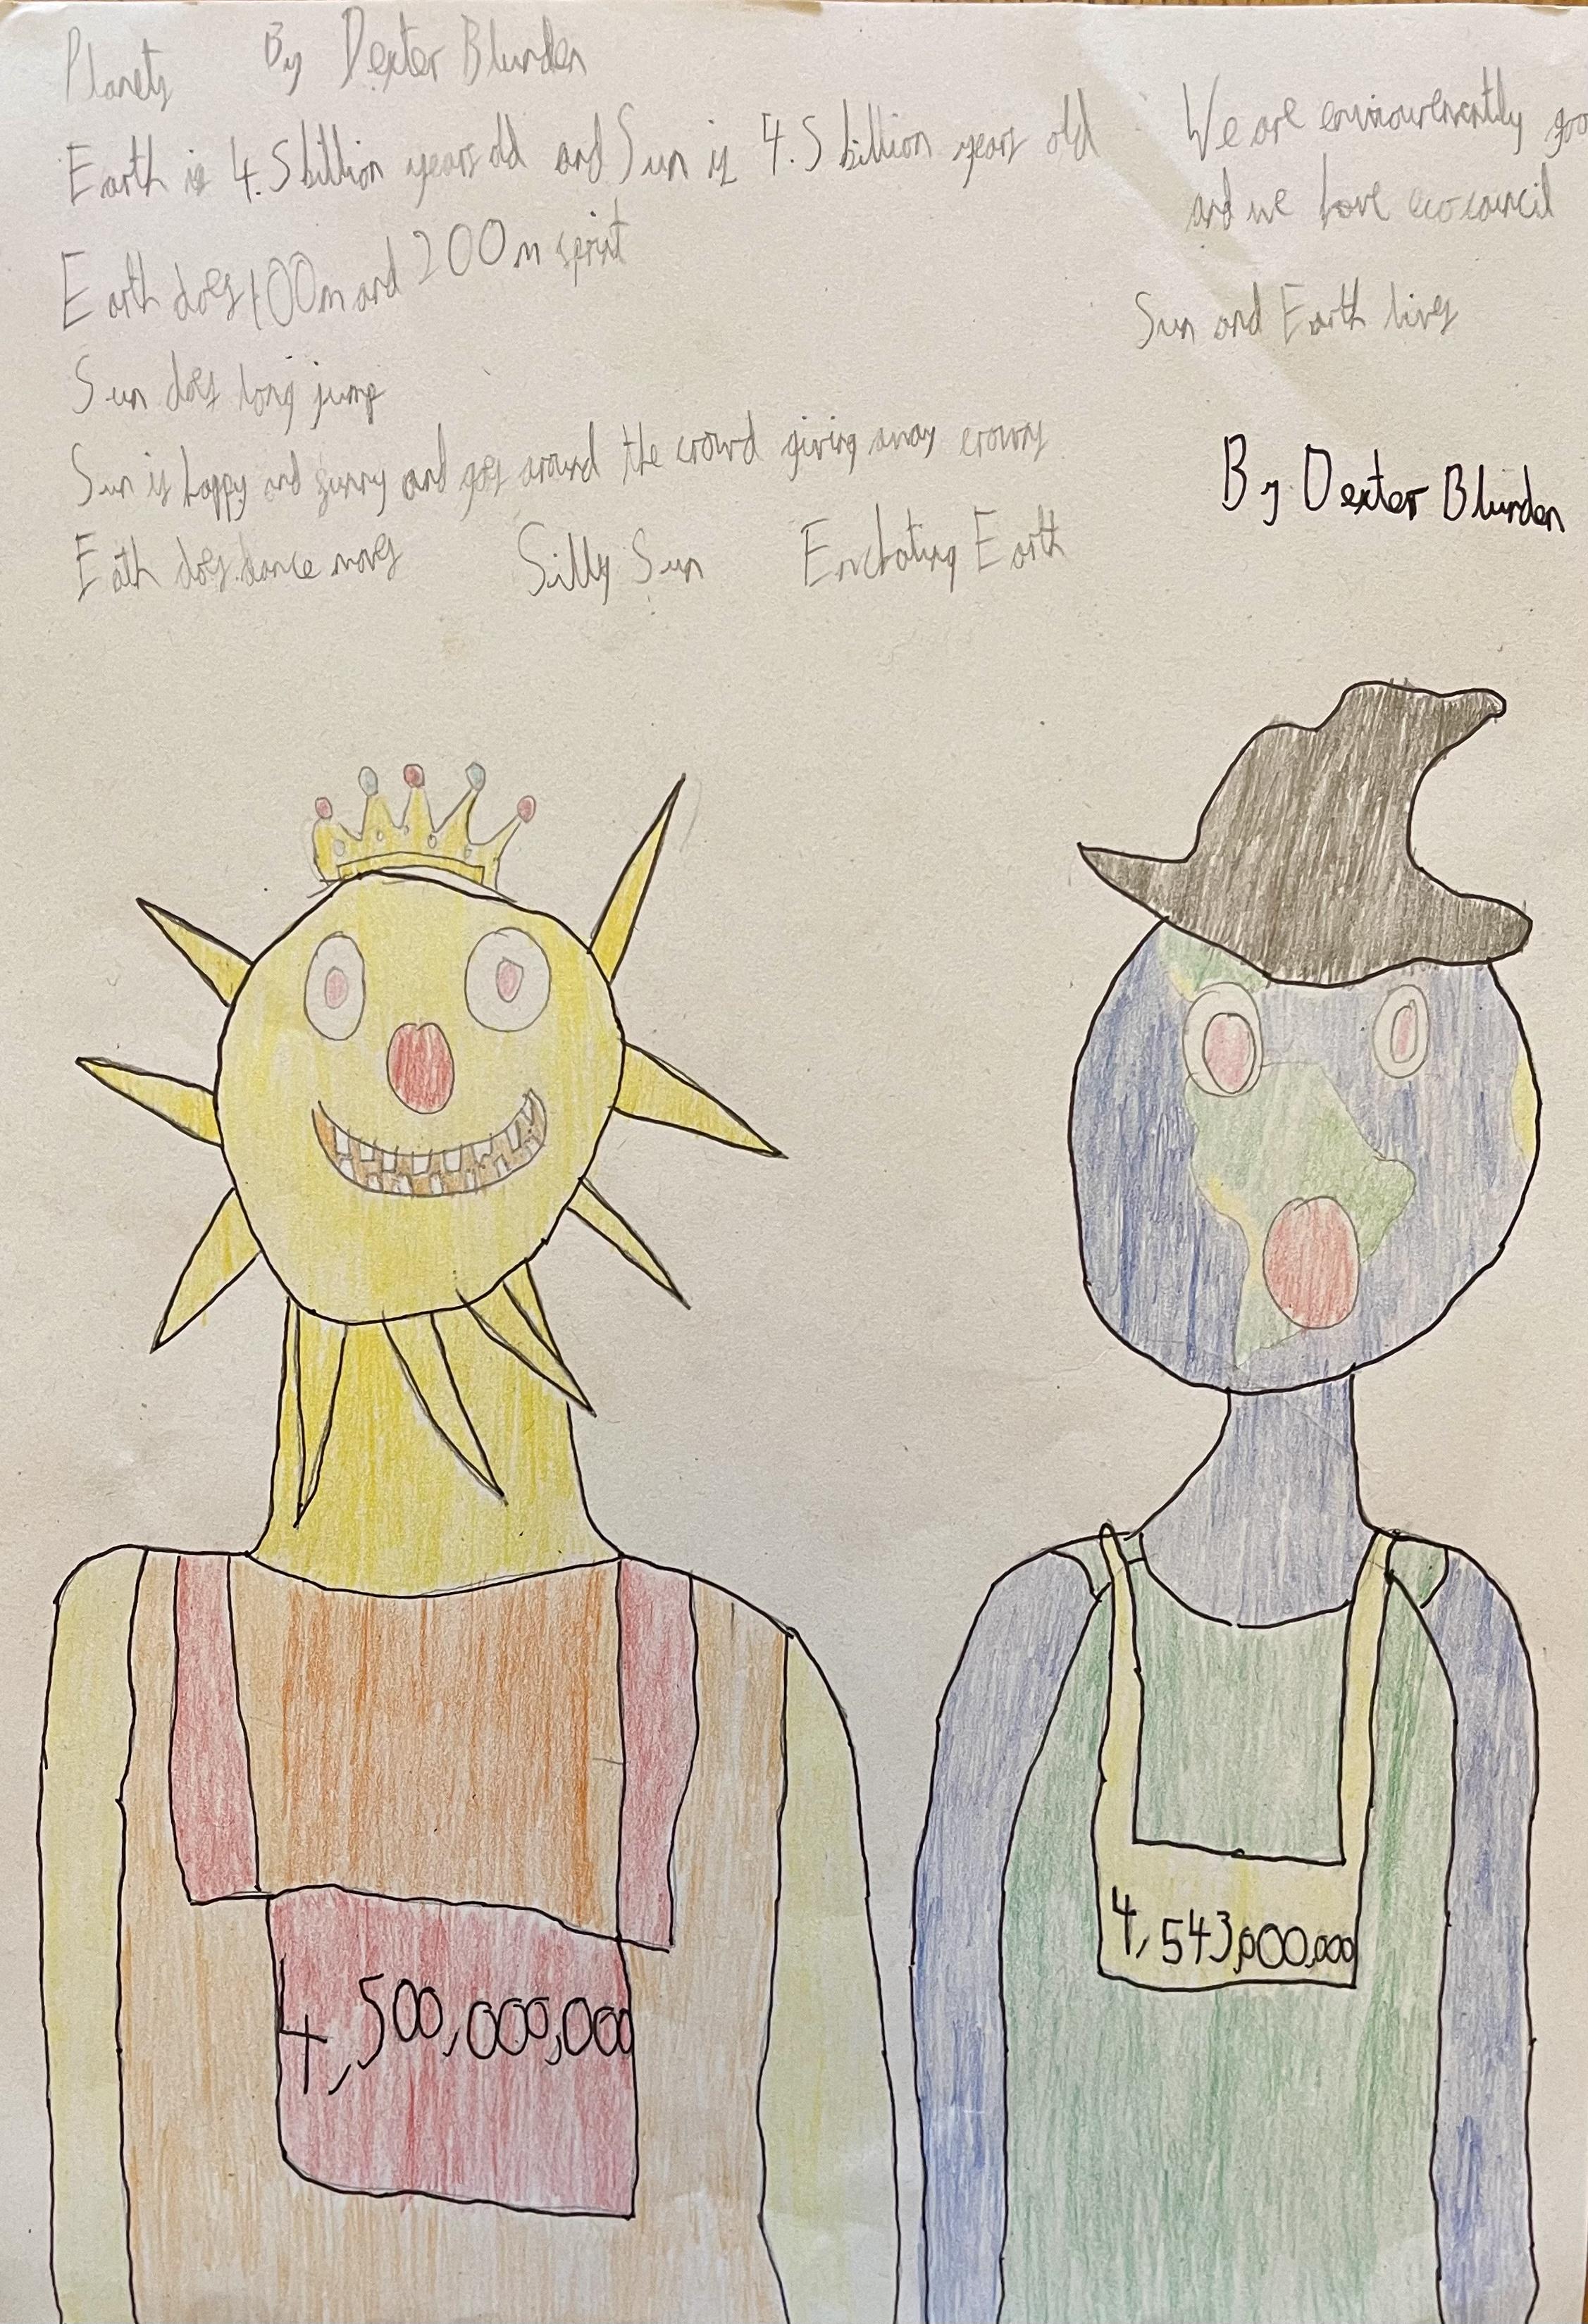 Planets By Dexter Blunden
Earth is 4.5 billion years old and Sun is 4.5 billion years old
Earth does 100m and 200m sprint
Sun does long jump
Sun is happy and sunny and goes around the crowd giving away crowns
Eath does dance moves Silly Sun Enchating Earth
We are enviourenmently goo
and we love eco council
Sun and Earth lives
By Dexter Blunden
4,500,000,000
4,543,000,000